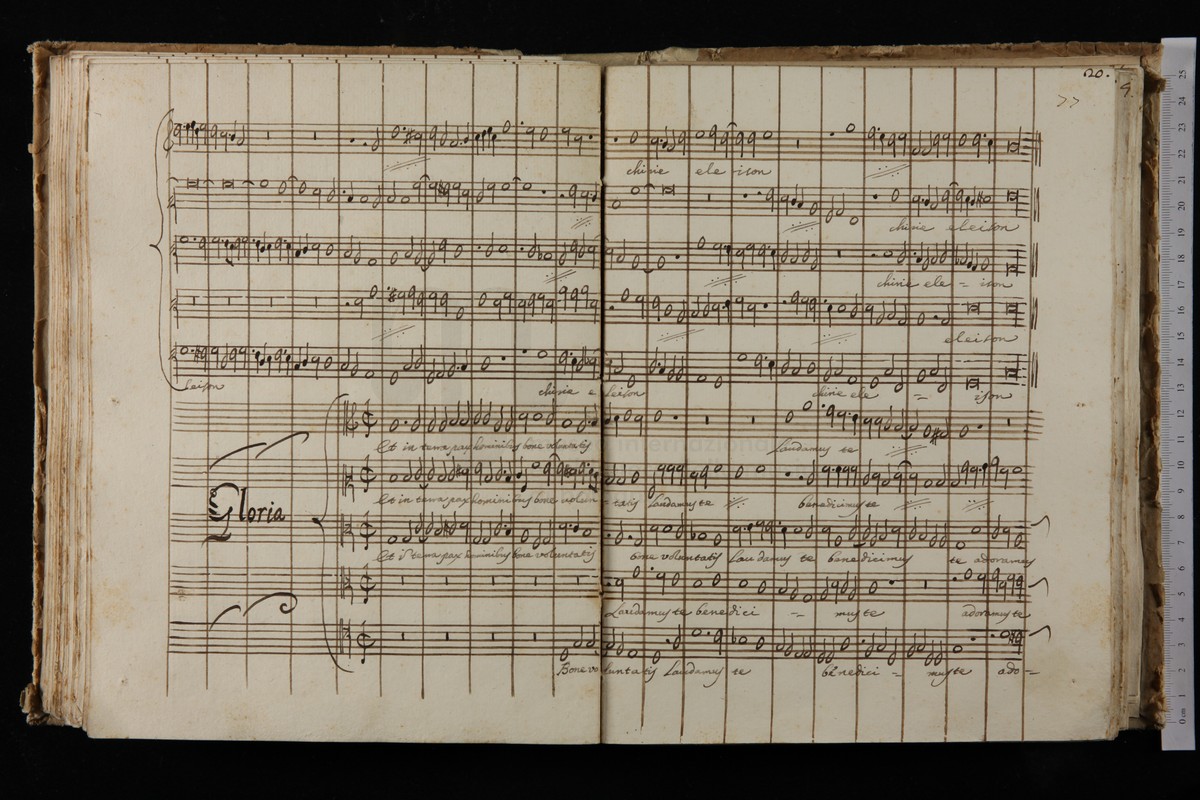 20.
9.
77
chirie ele-ison
chirie eleison
chirie ele = ison
eleison
leison chirie eleison chirie ele = ison
Et in terra pax hominibus bone voluntatis laudamus te
Et in terra pax hominibus bone volun = tatis laudamus te benedicimus te
Gloria
Et in terra pax hominibus bone voluntatis bone voluntatis laudamus te benedicimus te adoramus
Laudamus te benedici = mus te adoramus te
Bone voluntatis Laudamus te benedici = mus te ado =
internazional